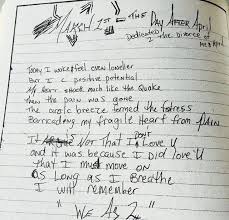 MARCH 1st — THE DAY AFTER April
Dedicated 2 the Divorce of
Me & April
Today I woke & feel even lonelier
But I C positive potential
My heart shook much like the Quake
then the pain was gone
The breeze formed the fortress
Barricading my fragile Heart from PAIN
It Not That I Don't Love U
and it was because I did love U
that I must move on
As long as I Breathe
I will remember
"WE AS 2"